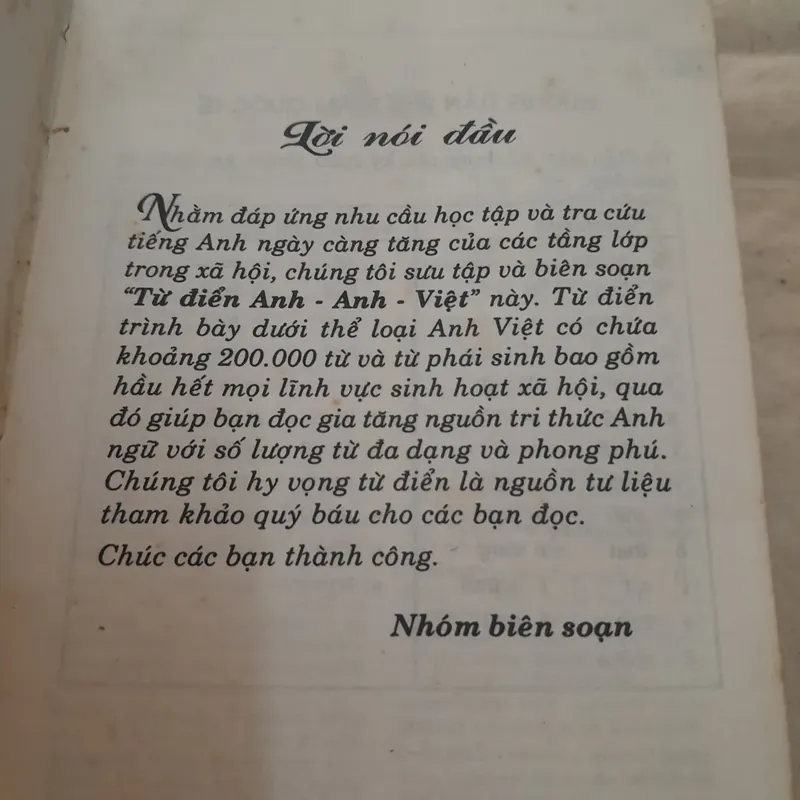 Lời nói đầu
Nhằm đáp ứng nhu cầu học tập và tra cứu
tiếng Anh ngày càng tăng của các tầng lớp
trong xã hội, chúng tôi sưu tập và biên soạn
“Từ điển Anh - Anh - Việt” này. Từ điển
trình bày dưới thể loại Anh Việt có chứa
khoảng 200.000 từ và từ phái sinh bao gồm
hầu hết mọi lĩnh vực sinh hoạt xã hội, qua
đó giúp bạn đọc gia tăng nguồn tri thức Anh
ngữ với số lượng từ đa dạng và phong phú.
Chúng tôi hy vọng từ điển là nguồn tư liệu
tham khảo quý báu cho các bạn đọc.
Chúc các bạn thành công.
Nhóm biên soạn